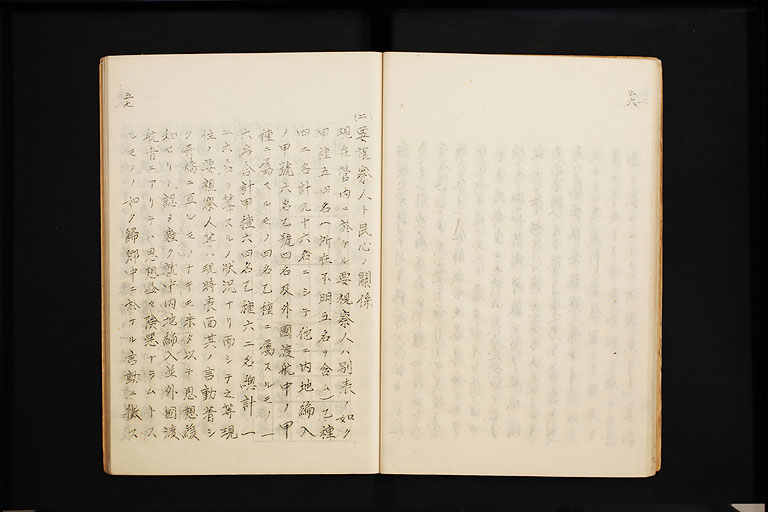 五六
(二)要視察人ト民心ノ關係
現在管内ニ於ケル要視察人ハ別表ノ如ク
甲種五四名(所在不明五名ヲ含ム)乙種
四二名計九十六名ニシテ他ニ内地編入
ノ甲號六名乙號四名及外國渡航中ノ甲
種ニ屬スルモノ四名乙種ニ屬スルモノ一
六名合計甲種六四名乙種六二名總計一
二六名ヲ算スルノ状況ナリ而シテ之等現
住ノ要視察人其ハ現時表面其ノ言動著シ
ク矯ニ亘ルモノナキモ未タ以テ思想緩
和セリト認メ難ク就中内地編入並外國渡
航者ニアリテハ思想益々險悪ナラムトス
ルモノノ如ク歸鄕中ニ於ケル言動ニ徴ス
五七